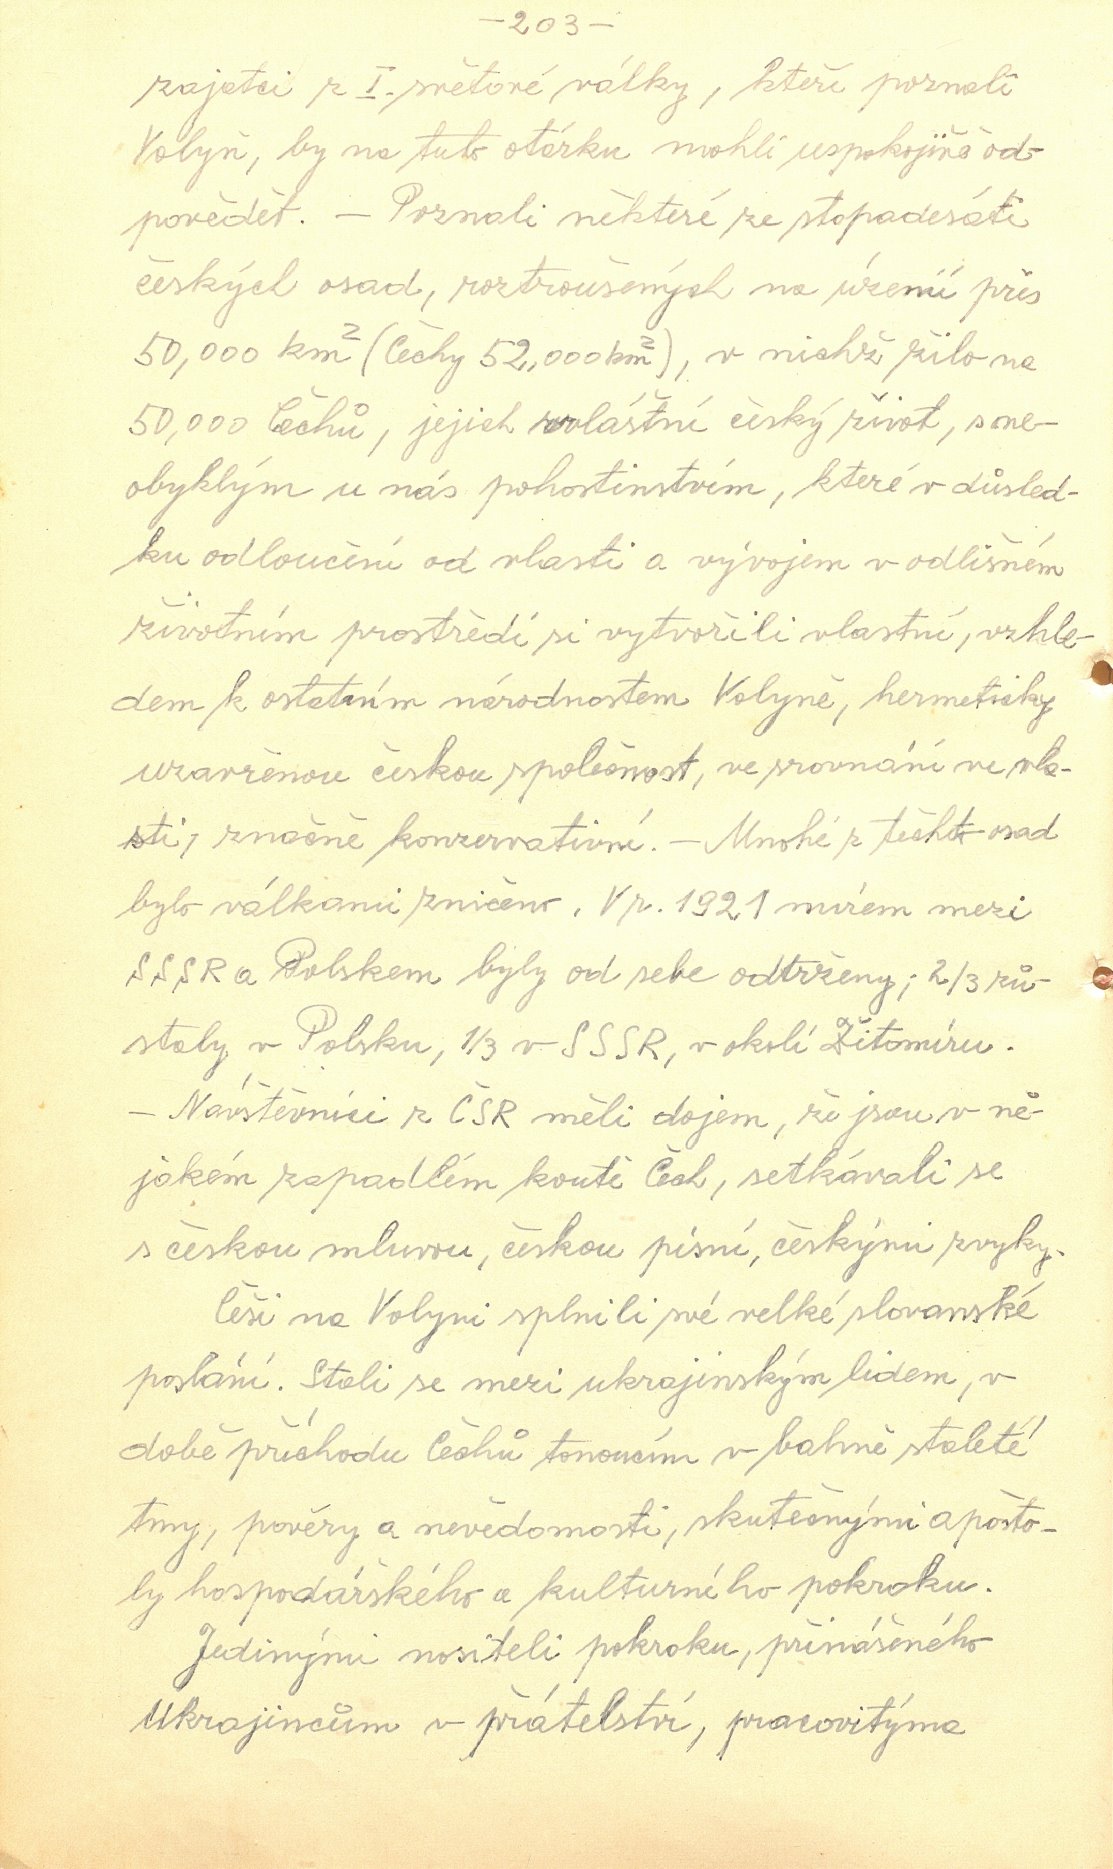 -203-
zajatci z I. světové války, kteří poznali
Volyň, by na tuto otázku mohli uspokojivě od-
povědět. - Poznali některé ze stopadesáti
českých osad, roztroušených na území přes
50,000 km² (Čechy 52,000 km²), v nichž žilo na
50,000 Čechů, jejich zvláštní český život, s ne-
obyklým u nás pohostinstvím, které v důsled-
ku odloučení od vlasti a vývojem v odlišném
životním prostředí si vytvořili vlastní, vzhle-
dem k ostatním národnostem Volyně, hermeticky
uzavřenou českou společnost, ve srovnání ve vla-
sti, značně konzervativní. - Mnohé z těchto osad
bylo válkami zničeno. V r. 1921 mírem mezi
SSSR a Polskem byly od sebe odtrženy; 2/3 zů-
staly v Polsku, 1/3 v SSSR, v okolí Žitomíru.
- Návštěvníci z ČSR měli dojem, že jsou v ně-
jakém zapadlém koutě Čech, setkávali se
s českou mluvou, českou písní, českými zvyky.
Češi na Volyni splnili své velké slovanské
poslání. Stali se mezi ukrajinským lidem, v
době příchodu Čechů tonoucím v bahně staleté
tmy, pověry a nevědomosti, skutečnými apošto-
ly hospodářského a kulturního pokroku.
Jedinými nositeli pokroku, přinášeného
Ukrajincům v přátelství, pracovitýma